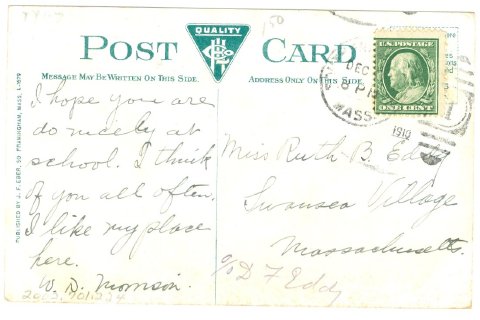 POST QUALITY CARD
MESSAGE MAY BE WRITTEN ON THIS SIDE.
ADDRESS ONLY ON THIS SIDE.
150
DEC
MASS
1910
U.S. POSTAGE
ONE CENT
I hope you are
do nicely at
school. I think
of you all often.
I like my place
here.
W. D. Morrison.
Miss Ruth B. Eddy
Swansea Village
Massachusetts.
c/o D F Eddy
PUBLISHED BY J. F. EBER, SO. FRAMINGHAM, MASS. L-1679